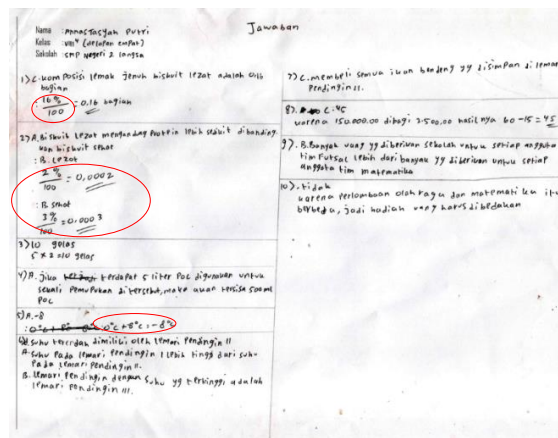 Jawaban
Nama : Annastasyah Putri
Kelas : VIII⁴ (delapan empat)
Sekolah : SMP Negeri 2 Langsa
1) C. Komposisi lemak jenuh biskuit lezat adalah 0,16
bagian
: 16%/100 = 0.16 bagian
2) A. Biskuit lezat mengandung Protein lebih sedikit dibanding
kan biskuit sehat
: B. Lezat
2%/100 = 0,0002
: B. Sehat
3%/100 = 0,0003
3) 10 gelas
5 x 2 = 10 gelas
4) A. Jika terdapat 5 liter Poc digunakan untuk
sekali Pemupukan tersebut, maka akan tersisa 500ml
Poc
5) A. -8
0°c + 8°c = -8°c
suhu terendah dimiliki oleh lemari Pendingin II
A. Suhu Pada lemari Pendingin I lebih tinggi dari suhu
Pada lemari Pendingin II.
B. lemari Pendingin dengan suhu yg tertinggi adalah
lemari Pendingin III.
7) C. membeli semua ikan bandeng yg disimpan di lemari
Pendingin II.
8) C. 45
karena 150.000.00 dibagi 2.500,00 hasilnya 60 - 15 = 45
9) B. Banyak uang yg diberikan sekolah untuk setiap anggota
tim futsal lebih dari banyak yg diberikan untuk setiap
anggota tim matematika
10). tidak
karena perlombaan olahraga dan matematika itu
berbeda, jadi hadiah uang harus dibedakan